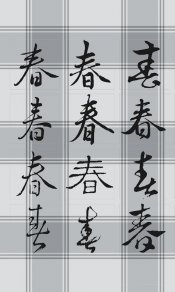 春春春
春春春
春春春
春春春